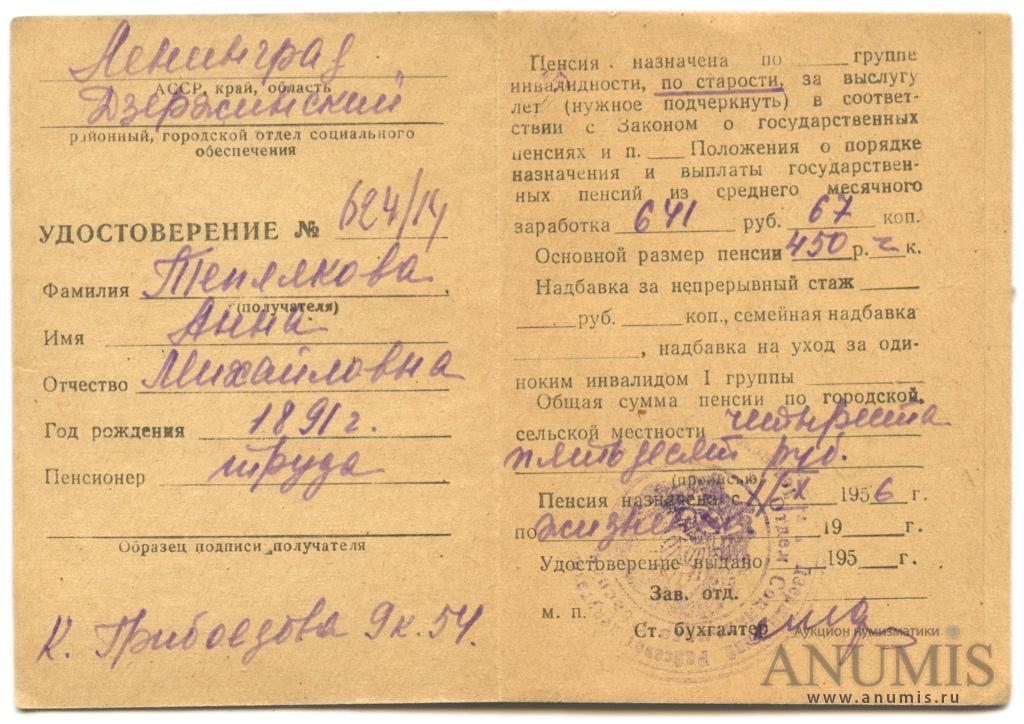 Ленинград
АССР, край, область
Дзержинский
районный, городской отдел социального
обеспечения
УДОСТОВЕРЕНИЕ № 624/14
Фамилия Теплякова
(получателя)
Имя Анна
Отчество Михайловна
Год рождения 1891 г.
Пенсионер труда
Образец подписи получателя
К. Грибоедова 9 к. 54.
Пенсия назначена по ______ группе
инвалидности, по старости, за выслугу
лет (нужное подчеркнуть) в соответ-
ствии с Законом о государственных
пенсиях и п. ___ Положения о порядке
назначения и выплаты государствен-
ных пенсий из среднего месячного
заработка 641 руб. 67 коп.
Основной размер пенсии 450 р. ч к.
Надбавка за непрерывный стаж ____
____ руб. ____ коп., семейная надбавка
________, надбавка на уход за оди-
ноким инвалидом I группы ________
Общая сумма пенсии по городской,
сельской местности четыреста
пятьдесят руб.
(прописью)
Пенсия назначена с 1/X 1956 г.
по жизненно. 19___ г.
Удостоверение выдано ____ 195___ г.
Зав. отд.
м. п.
Ст. бухгалтер
Аукцион нумизматики
ANUMIS
www.anumis.ru